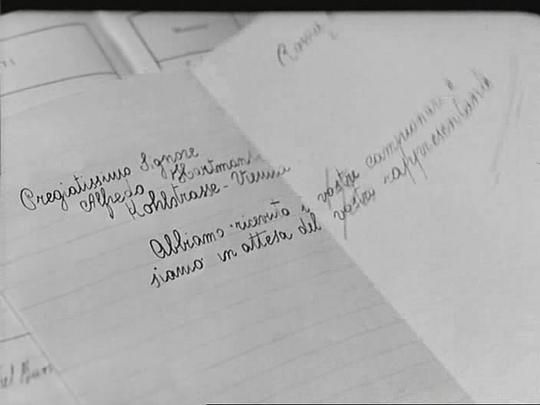 Pregiatissimo Signore
Alfredo Hartman
Kohlstrasse - Vienna
Abbiamo ricevuto i vostri campionari e
siamo in attesa del vostro rappresentante